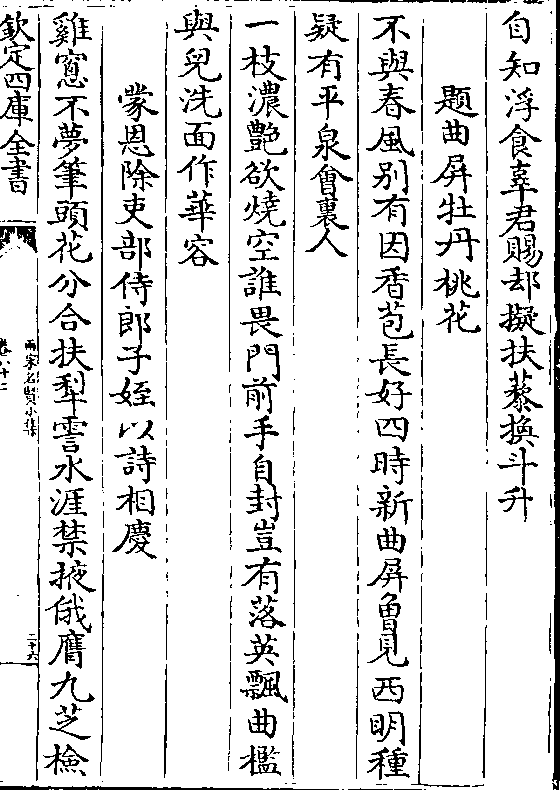 自知浮食辜君賜却擬扶藜換斗升
題曲屏牡丹桃花
不與春風别有因香苞長好四時新曲屏曾見西明種
疑有平泉會裏人
一枝濃艶欲燒空誰畏門前手自封豈有落英飄曲檻
與兒洗面作華容
蒙恩除吏部侍郎子姪以詩相慶
雞窻不夢筆頭花分合扶犁霅水涯禁掖俄膺九芝檢
欽定四庫全書
兩宋名賢小集
卷六十二
二十六